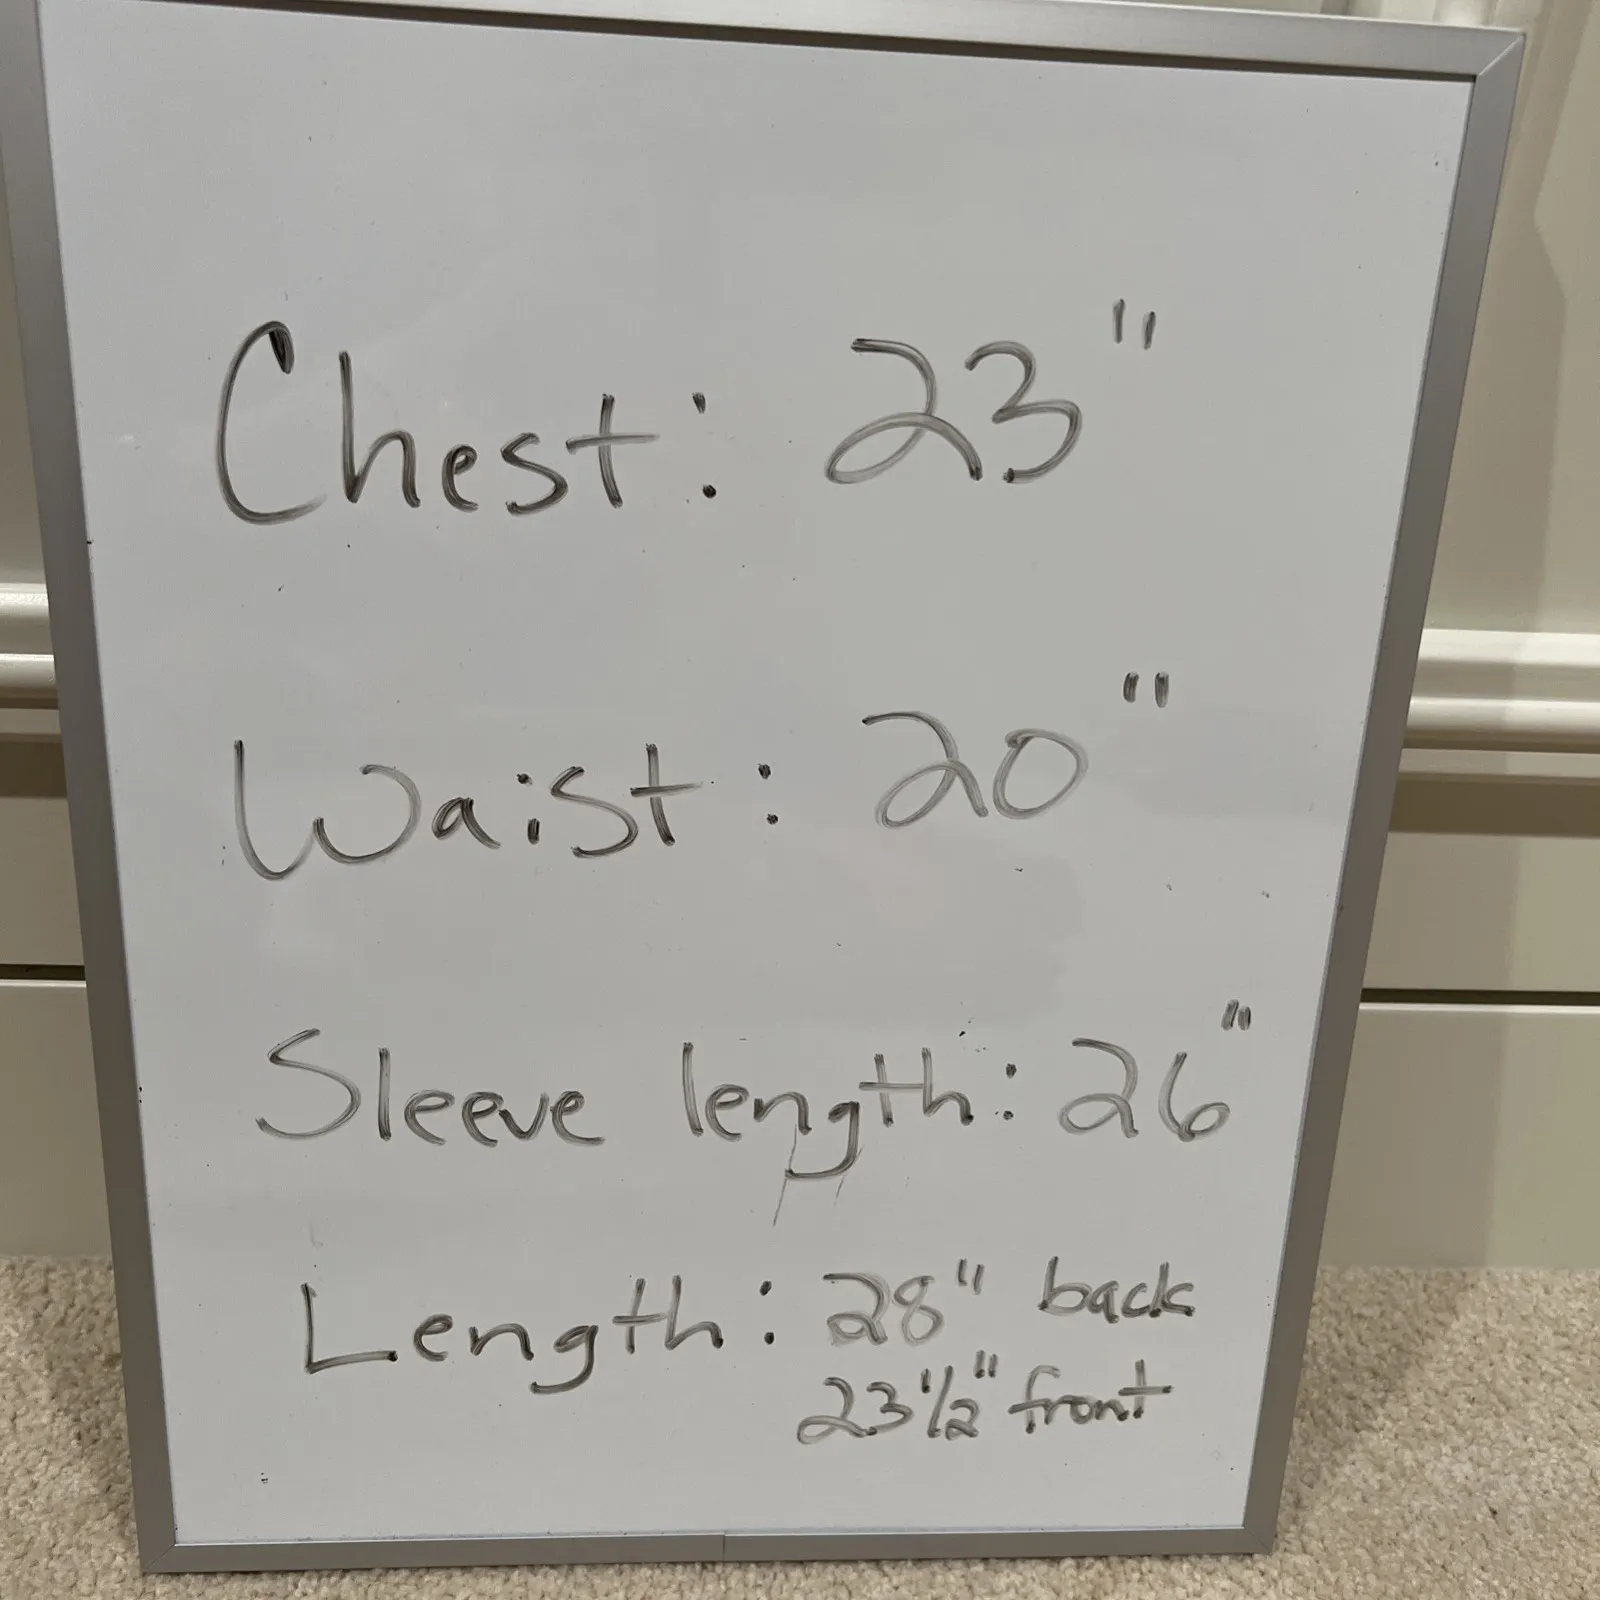 Chest: 23"
Waist: 20"
Sleeve length: 26"
Length: 28" back
23 1/2" front